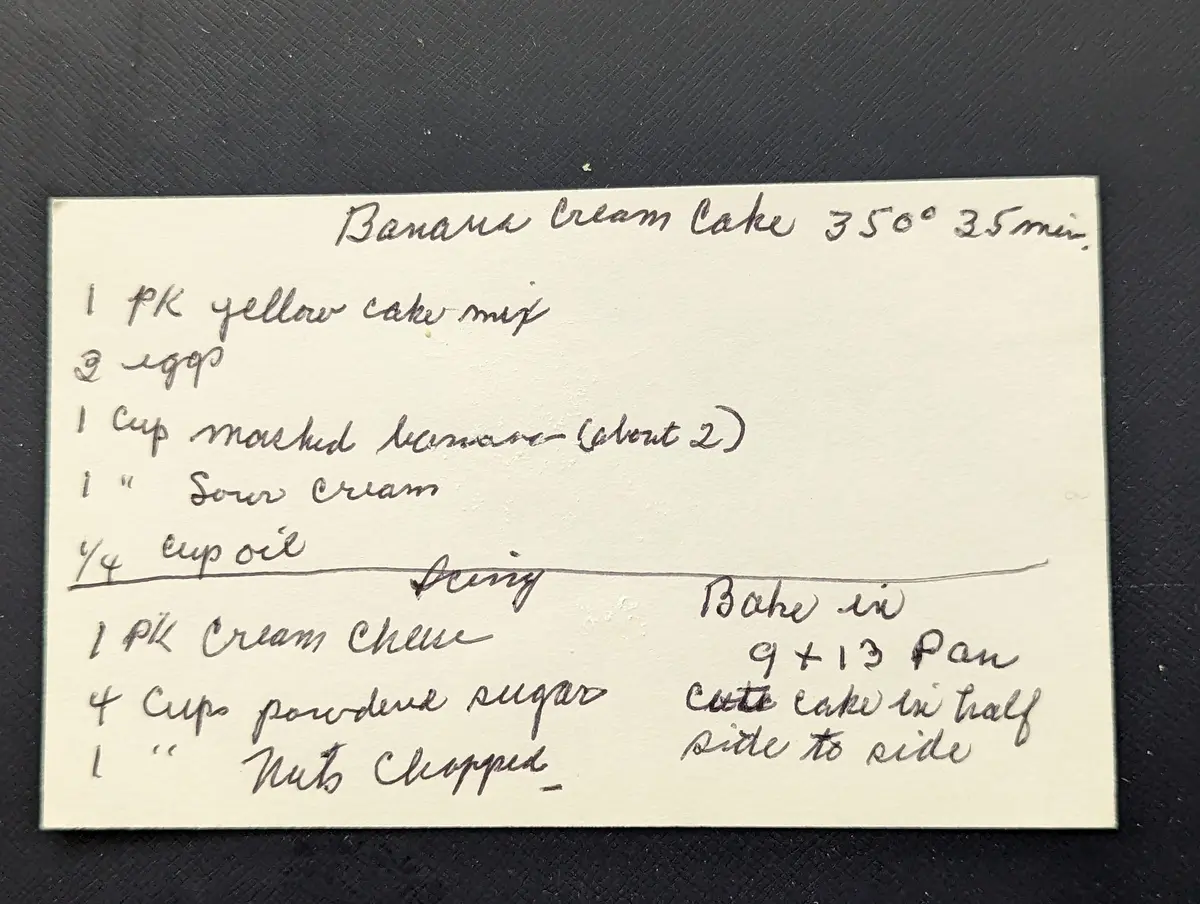 Banana Cream Cake 350° 35 min.
1 PK yellow cake mix
3 eggs
1 Cup mashed banana (about 2)
1 " Sour Cream
1/4 cup oil
Icing
1 PK Cream Cheese
4 Cups powdered sugar
1 " Nuts Chopped
Bake in
9 x 13 Pan
Cut cake in half
side to side